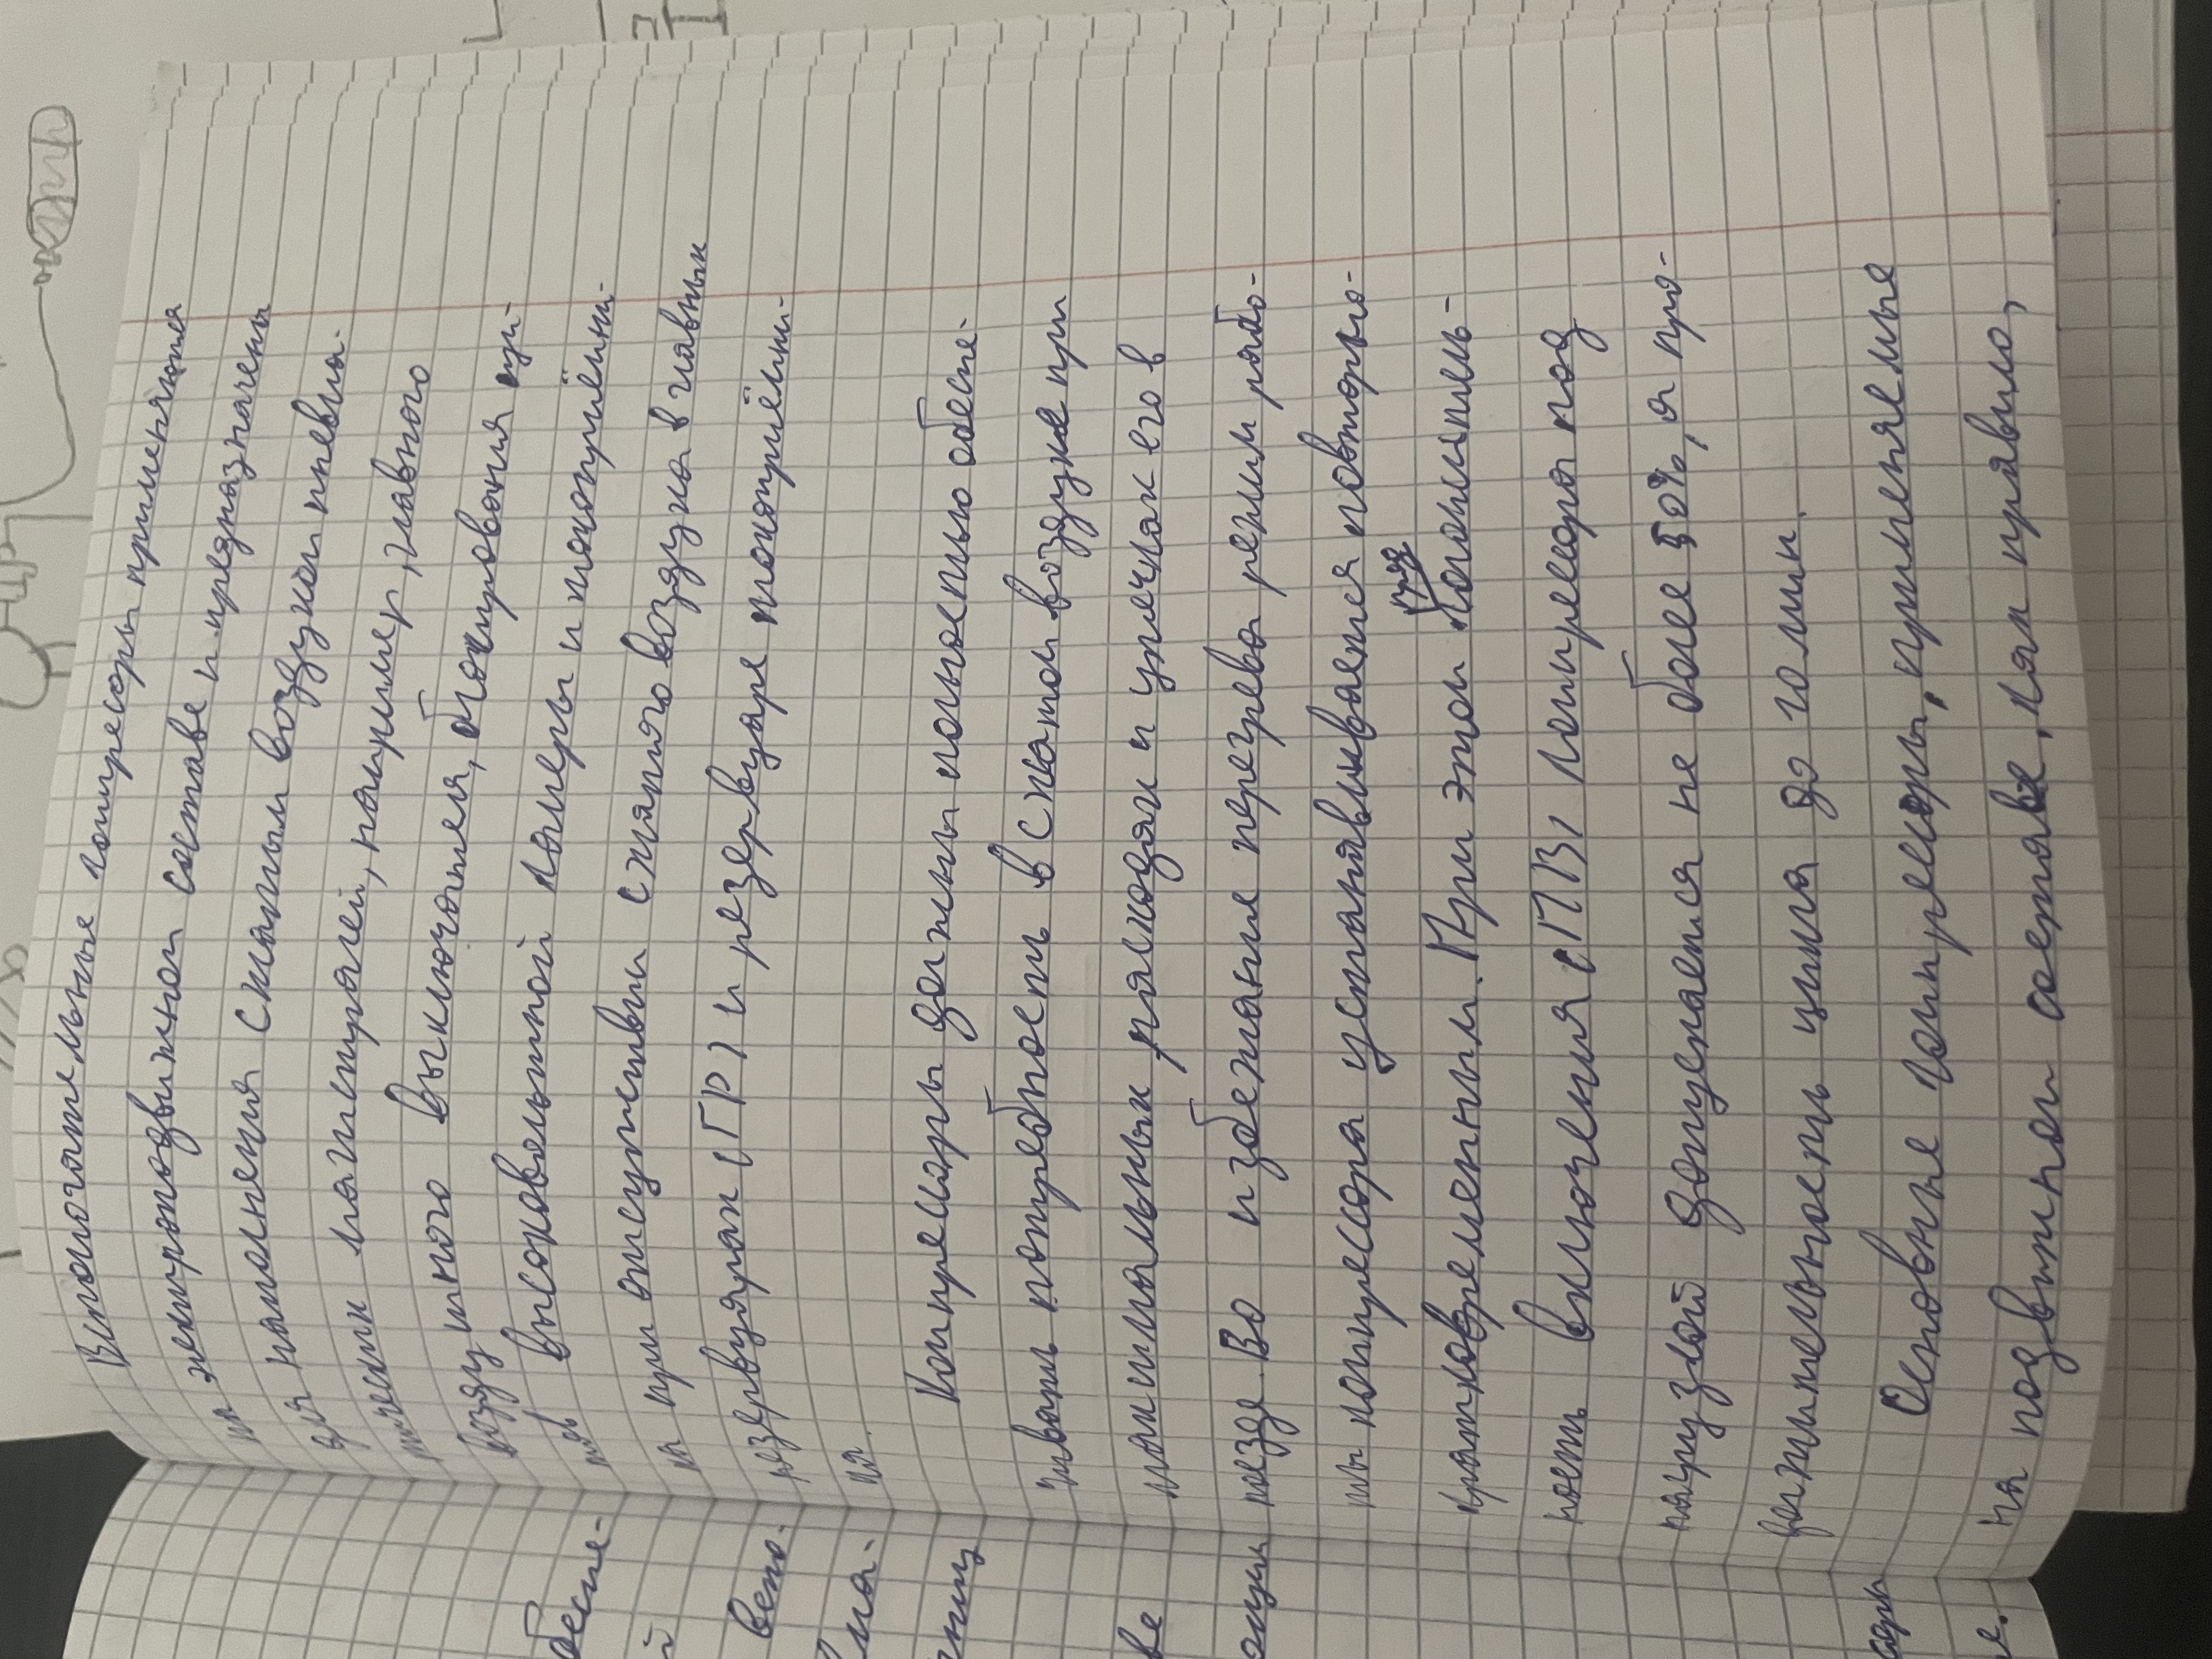 Вспомогательные компрессоры применяются
на электроподвижном составе и предназначены
для наполнения сжатым воздухом пневма-
тических магистралей, например, главного
воздушного выключателя, блокирования щи-
тов высоковольтной камеры и токоприёмни-
ка при отсутствии сжатого воздуха в главных
резервуарах (ГР) и резервуаре токоприёмни-
ка.
Компрессоры должны полностью обеспе-
чивать потребность в сжатом воздухе при
максимальных расходах и утечках его в
поезде. Во избежание перегрева режим рабо-
ты компрессора устанавливается повторно-
кратковременным. При этом
ность включения (ПВ) компрессора под
нагрузкой допускается не более 50%, а про-
должительность цикла до 10 мин.
Основные компрессоры, применяемые
на подвижном составе, как правило,
беспе-
й